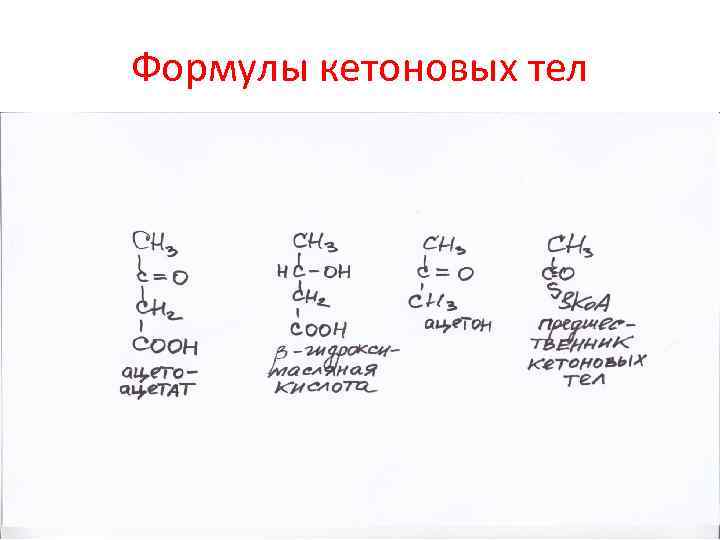 Формулы кетоновых тел
CH3
C=O
CH2
COOH
ацето-
ацетат
CH3
HC-OH
CH2
COOH
β-гидрокси-
масляная
кислота
CH3
C=O
CH3
ацетон
CH3
C=O
SKoA
предшес-
твенник
кетоновых
тел